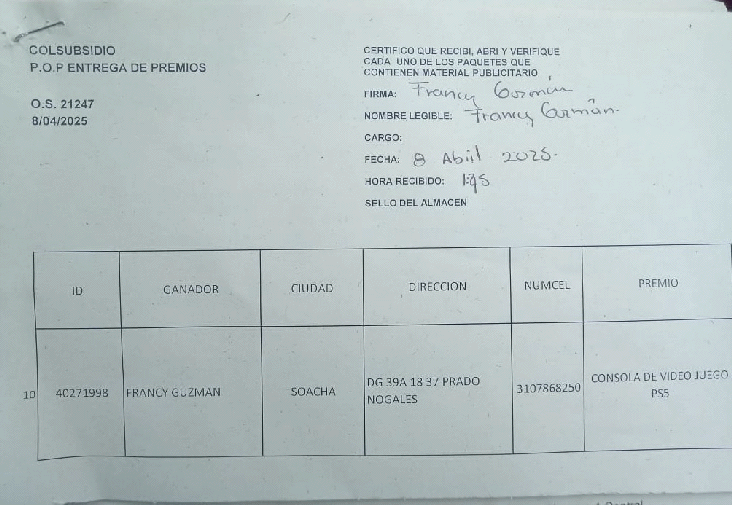 COLSUBSIDIO
P.O.P ENTREGA DE PREMIOS
O.S. 21247
8/04/2025
CERTIFICO QUE RECIBI, ABRI Y VERIFIQUE
CADA UNO DE LOS PAQUETES QUE
CONTIENEN MATERIAL PUBLICITARIO
FIRMA: Francy Guzmán
NOMBRE LEGIBLE: Francy Guzmán.
CARGO:
FECHA: 8 Abril 2025.
HORA RECIBIDO:
SELLO DEL ALMACEN
ID GANADOR CIUDAD DIRECCION NUMCEL PREMIO
10 40271998 FRANCY GUZMAN SOACHA DG 39A 18 37 PRADO NOGALES 3107868250 CONSOLA DE VIDEO JUEGO PS5